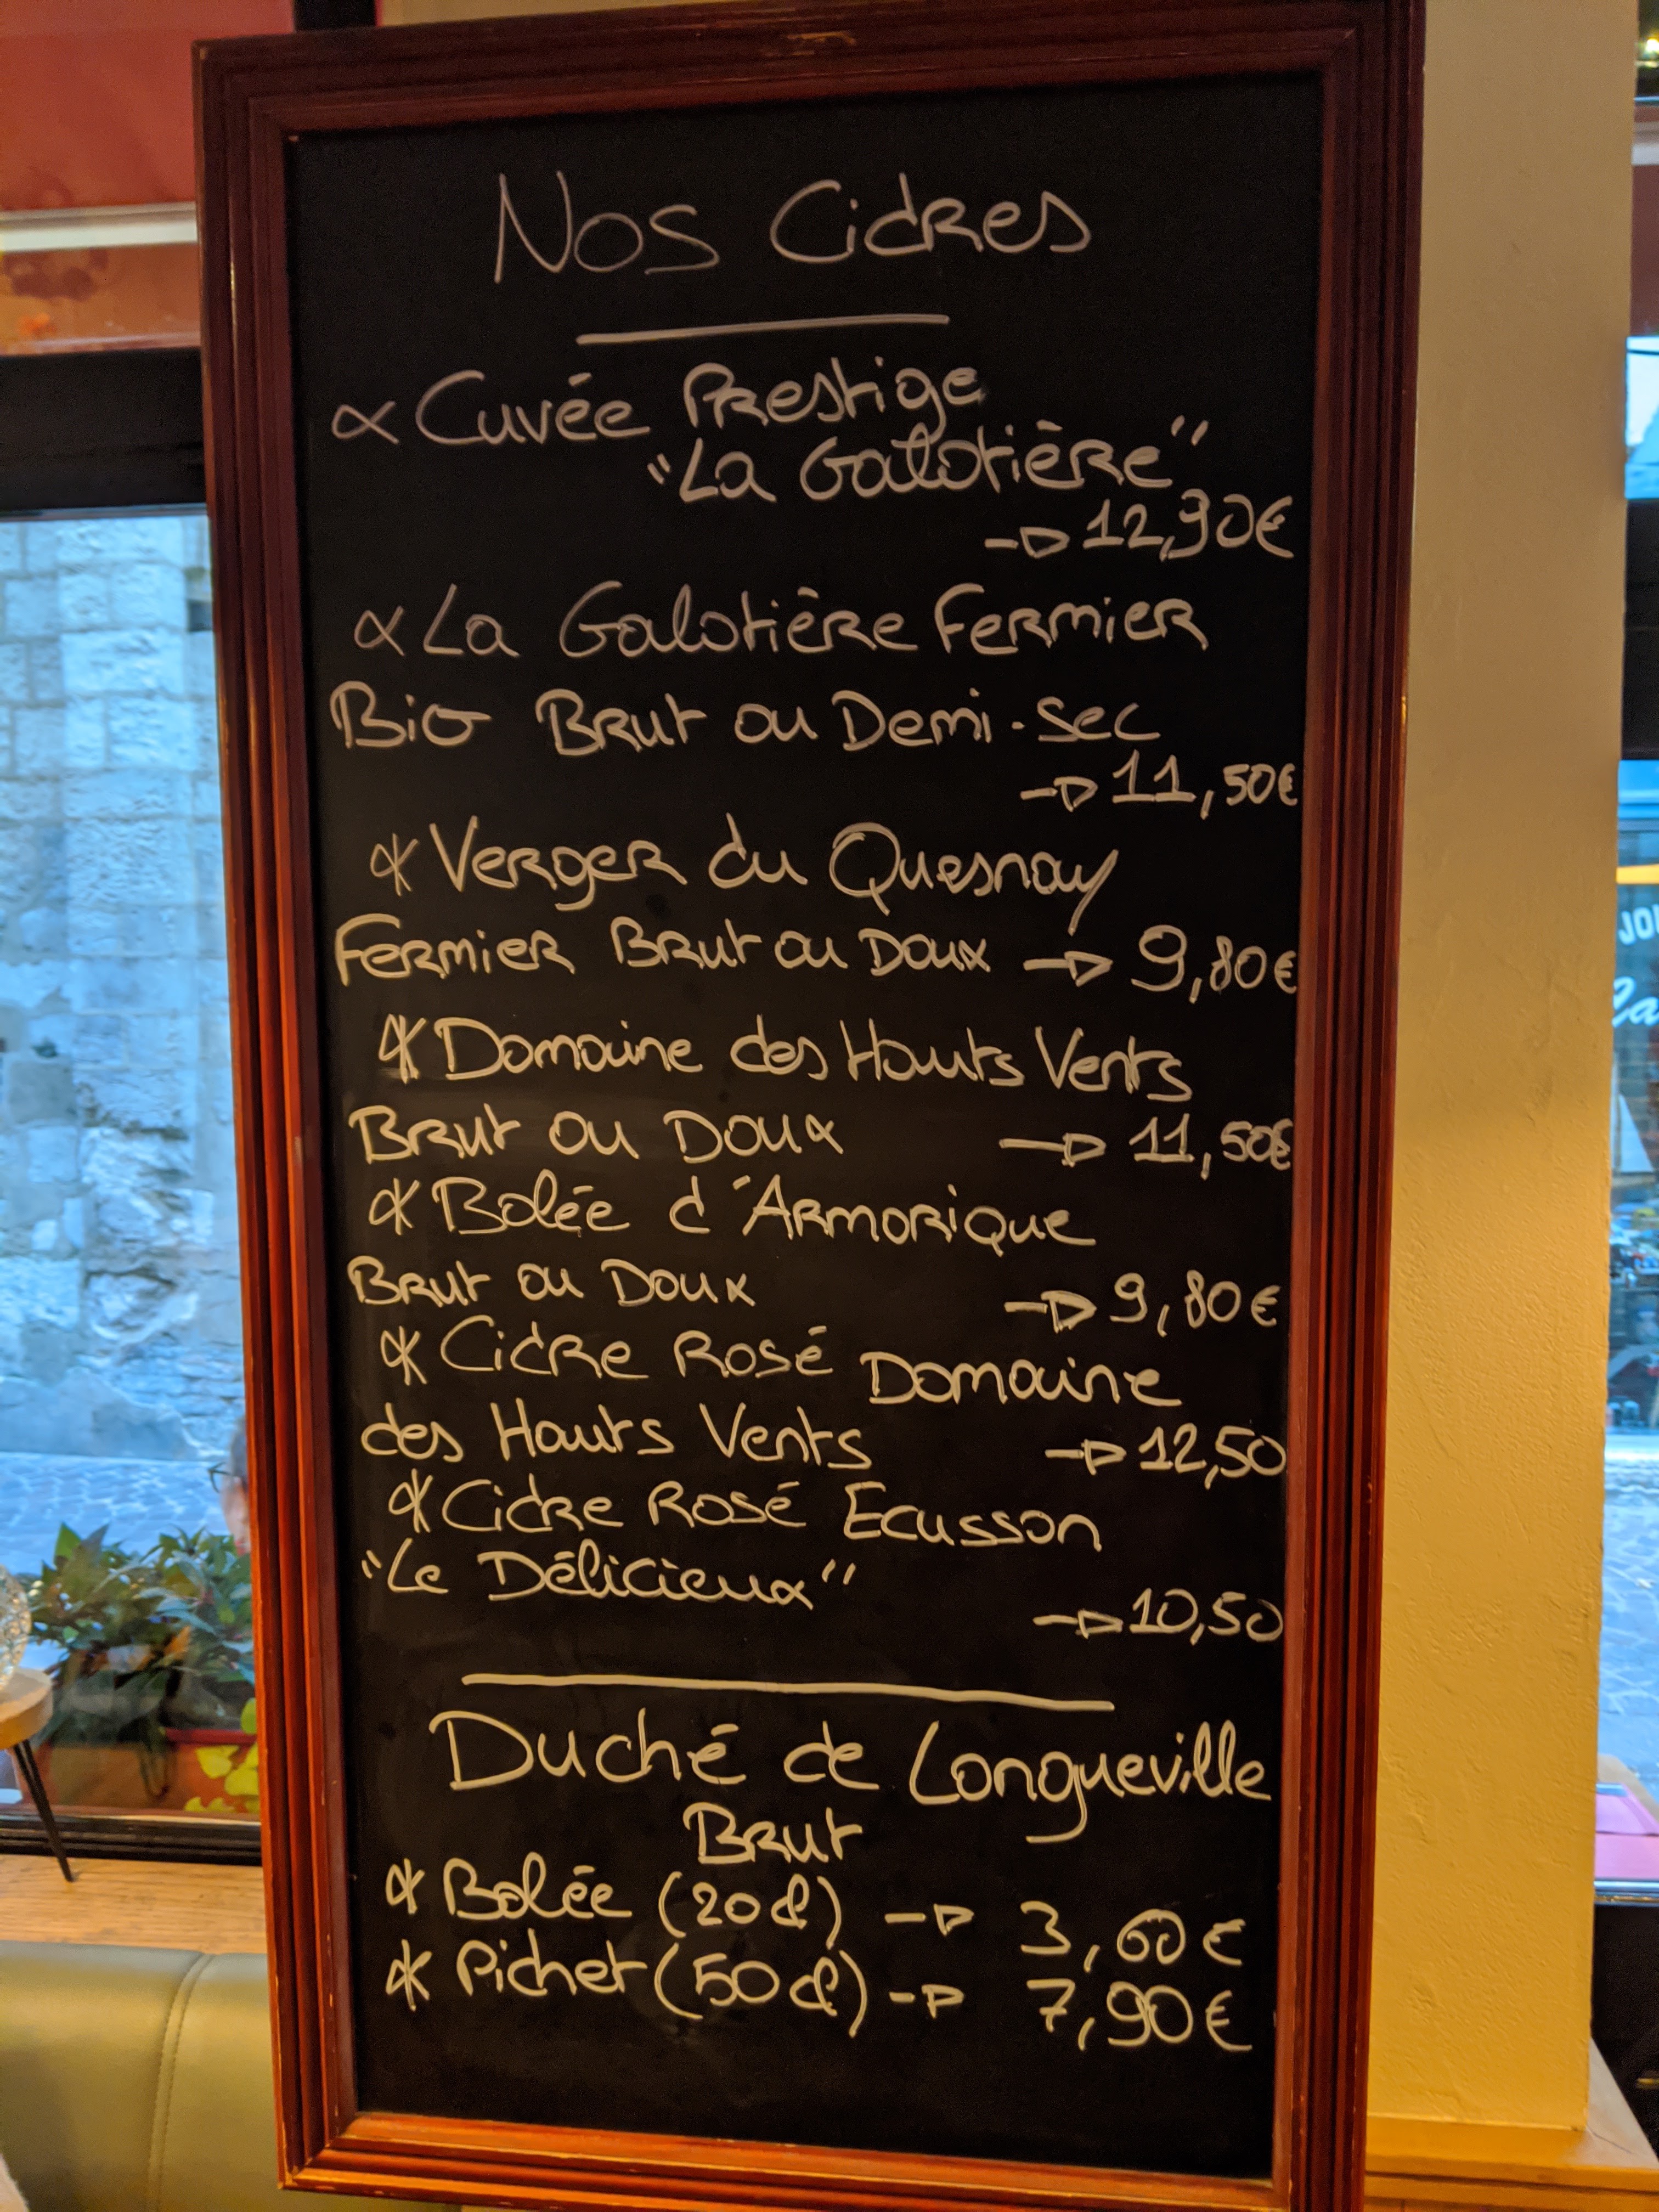 Nos Cidres
* Cuvée Prestige
"La Galotière"
→ 12,90€
* La Galotière Fermier
Bio Brut ou Demi-Sec
→ 11,50€
* Verger du Quesnay
Fermier Brut ou Doux → 9,80€
* Domaine des Hauts Vents
Brut ou Doux → 11,50€
* Bolée d'Armorique
Brut ou Doux → 9,80€
* Cidre Rosé Domaine
des Hauts Vents → 12,50
* Cidre Rosé Ecusson
"Le Délicieux"
→ 10,50
Duché de Longueville
Brut
* Bolée (20cl) → 3,60€
* Pichet (50cl) → 7,90€